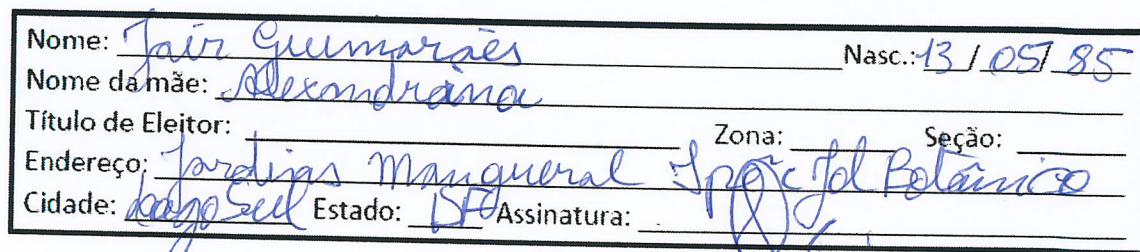 Nome: Jair Guimarães Nasc.: 13 / 05 / 85
Nome da mãe: Alexandrina
Título de Eleitor: Zona: Seção:
Endereço: Jardins Mangueral Jd Botânico
Cidade: Lago Sul Estado: DF Assinatura: